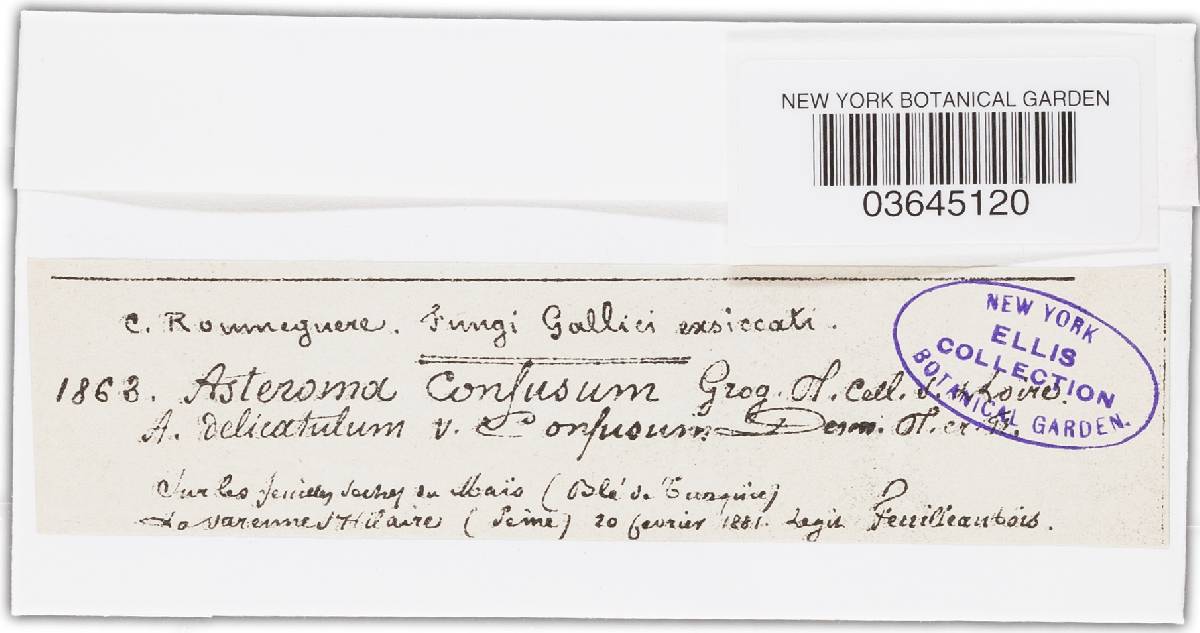 NEW YORK BOTANICAL GARDEN
03645120
C. Roumeguere. Fungi Gallici exsiccati.
NEW YORK
ELLIS
COLLECTION
BOTANICAL GARDEN.
1863. Asteroma Confusum Grog. Pl. Cell. S. et Loire.
A. delicatulum v. Confusum Desm. Pl. cr.
Sur les feuilles seches du Maïs (Blé de Turquie)
La varenne St Hilaire (Seine) 20 fevrier 1881. Legit Feuilleaubois.